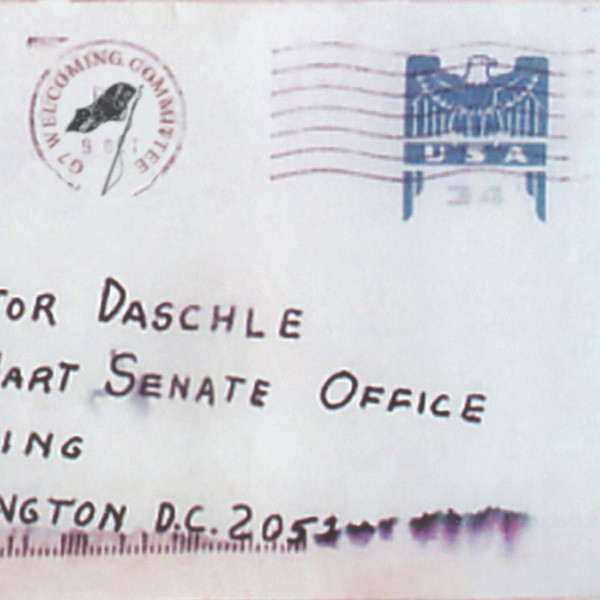 G7 WELCOMING COMMITTEE
USA
34
TOR DASCHLE
HART SENATE OFFICE
ING
NGTON D.C. 205